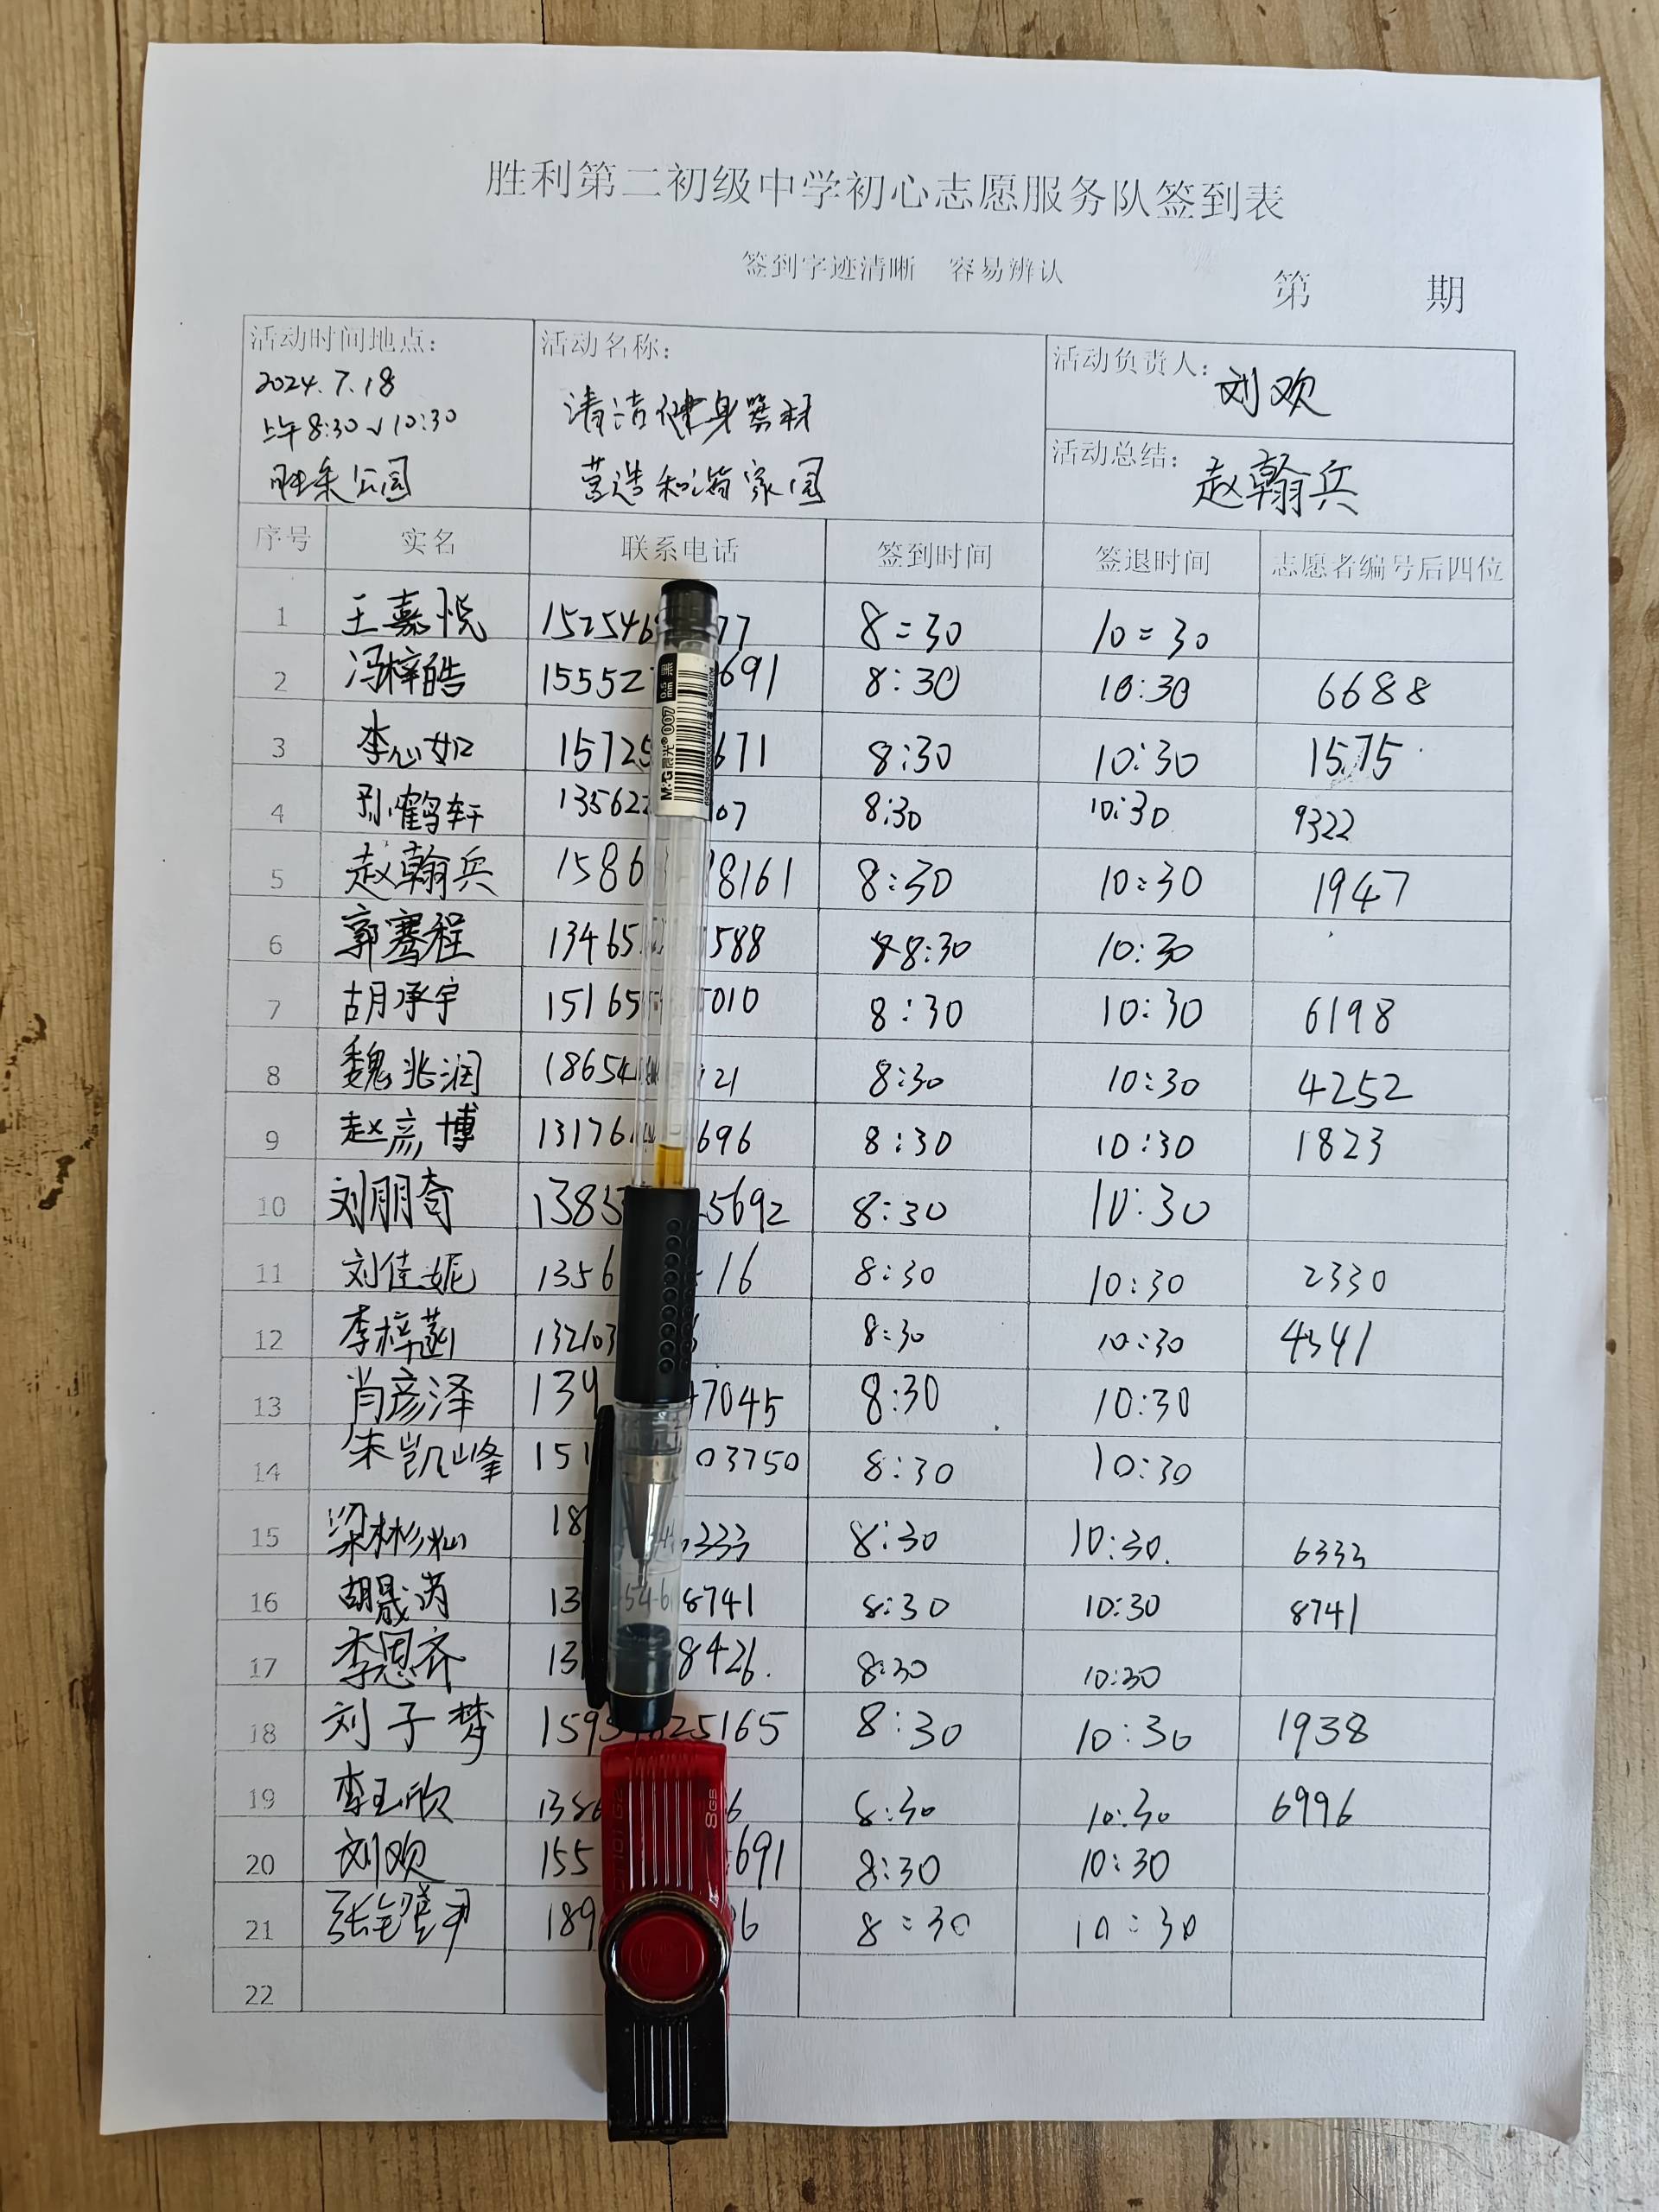 胜利第二初级中学初心志愿服务队签到表
签到字迹清晰 容易辨认
第 期
活动时间地点: 活动名称: 活动负责人: 刘欢
2024.7.18 清洁健身器材
上午8:30~10:30 营造和谐家园 活动总结: 赵翰兵
胜采公园
序号 实名 联系电话 签到时间 签退时间 志愿者编号后四位
1 王嘉悦 152546 77 8:30 10:30
2 冯梓皓 15552 691 8:30 10:30 6688
3 李心如 15725 671 8:30 10:30 1575
4 孙鹤轩 13562 07 8:30 10:30 9322
5 赵翰兵 1586 8161 8:30 10:30 1947
6 郭骞程 13465 588 8:30 10:30
7 胡承宇 15165 5010 8:30 10:30 6198
8 魏兆润 18654 21 8:30 10:30 4252
9 赵彦博 13176 696 8:30 10:30 1823
10 刘朋奇 1385 5692 8:30 10:30
11 刘佳妮 1356 16 8:30 10:30 2330
12 李梓菡 132103 8:30 10:30 4341
13 肖彦泽 139 7045 8:30 10:30
14 朱凯峰 151 03750 8:30 10:30
15 梁彬灿 18 333 8:30 10:30. 6333
16 胡晟 13 546 8741 8:30 10:30 8741
17 李恩齐 13 8426. 8:30 10:30
18 刘子梦 159 25165 8:30 10:30 1938
19 李玉欣 1386 6 8:30 10:30 6996
20 刘欢 155 691 8:30 10:30
21 张 189 6 8:30 10:30
22
M&G 晨光 007
0.5 mm 黑
8GB